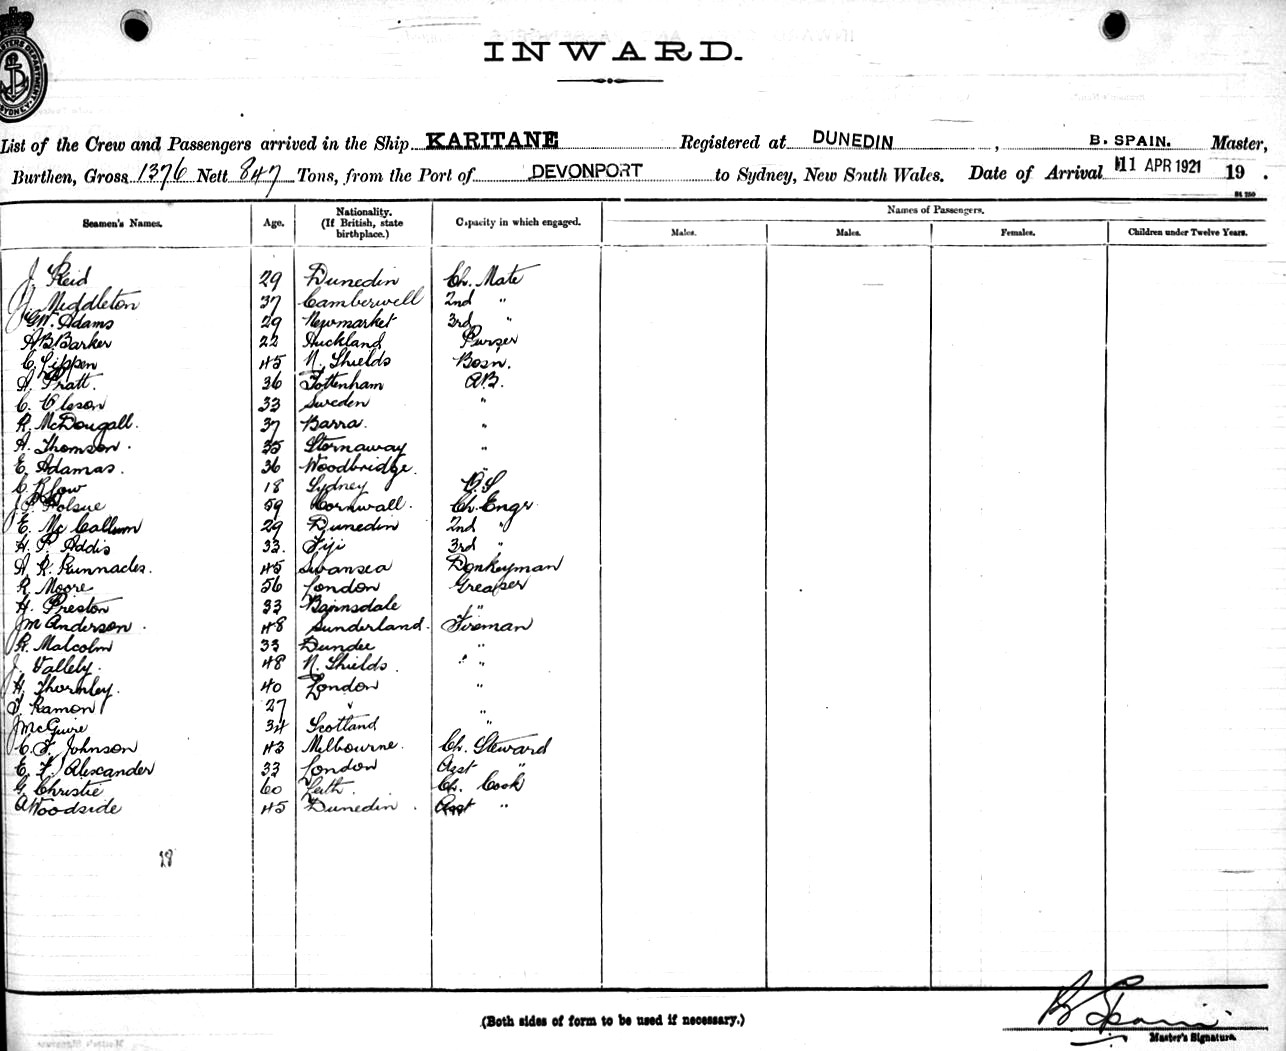 INWARD.
List of the Crew and Passengers arrived in the Ship KARITANE Registered at DUNEDIN , B. SPAIN. Master,
Burthen, Gross 1376 Nett 847 Tons, from the Port of DEVONPORT to Sydney, New South Wales. Date of Arrival 11 APR 1921 19 .
Seamen's Names. Age. Nationality. (If British, state birthplace.) Capacity in which engaged. Names of Passengers.
Males. Males. Females. Children under Twelve Years.
J. Reid 29 Dunedin Ch. Mate
J. Middleton 37 Camberwell 2nd "
G.W. Adams 29 Newmarket 3rd "
A.B. Barker 22 Auckland Purser
C. Lippen 45 N. Shields Bosn.
A. Pratt. 36 Tottenham A.B.
C. Olsson 33 Sweden "
R. McDougall. 37 Barra. "
A. Thomson. 35 Stornaway "
E. Adamas. 36 Woodbridge. "
C. R. Low 18 Sydney O.S
J. P. Polsue 59 Cornwall. Ch. Engr
E. McCallum 29 Dunedin 2nd "
H. P. Addis 33. Fiji 3rd "
A. R. Runnacles. 45 Swansea Donkeyman
R. Moore 56 London Greaser
H. Preston 33 Bairnsdale "
J M Anderson. 48 Sunderland. Fireman
R. Malcolm 33 Dundee "
J. Vallely. 48 N. Shields. "
H. Thornley. 40 London "
Ramon 27 " "
J McGuire 34 Scotland "
C. F. Johnson 43 Melbourne. Ch. Steward
E. F. Alexander 33 London Asst "
G. Christie 60 Leith. Ch. Cook
A Woodside 45 Dunedin. Asst "
(Both sides of form to be used if necessary.)
B Spain
Master's Signature.